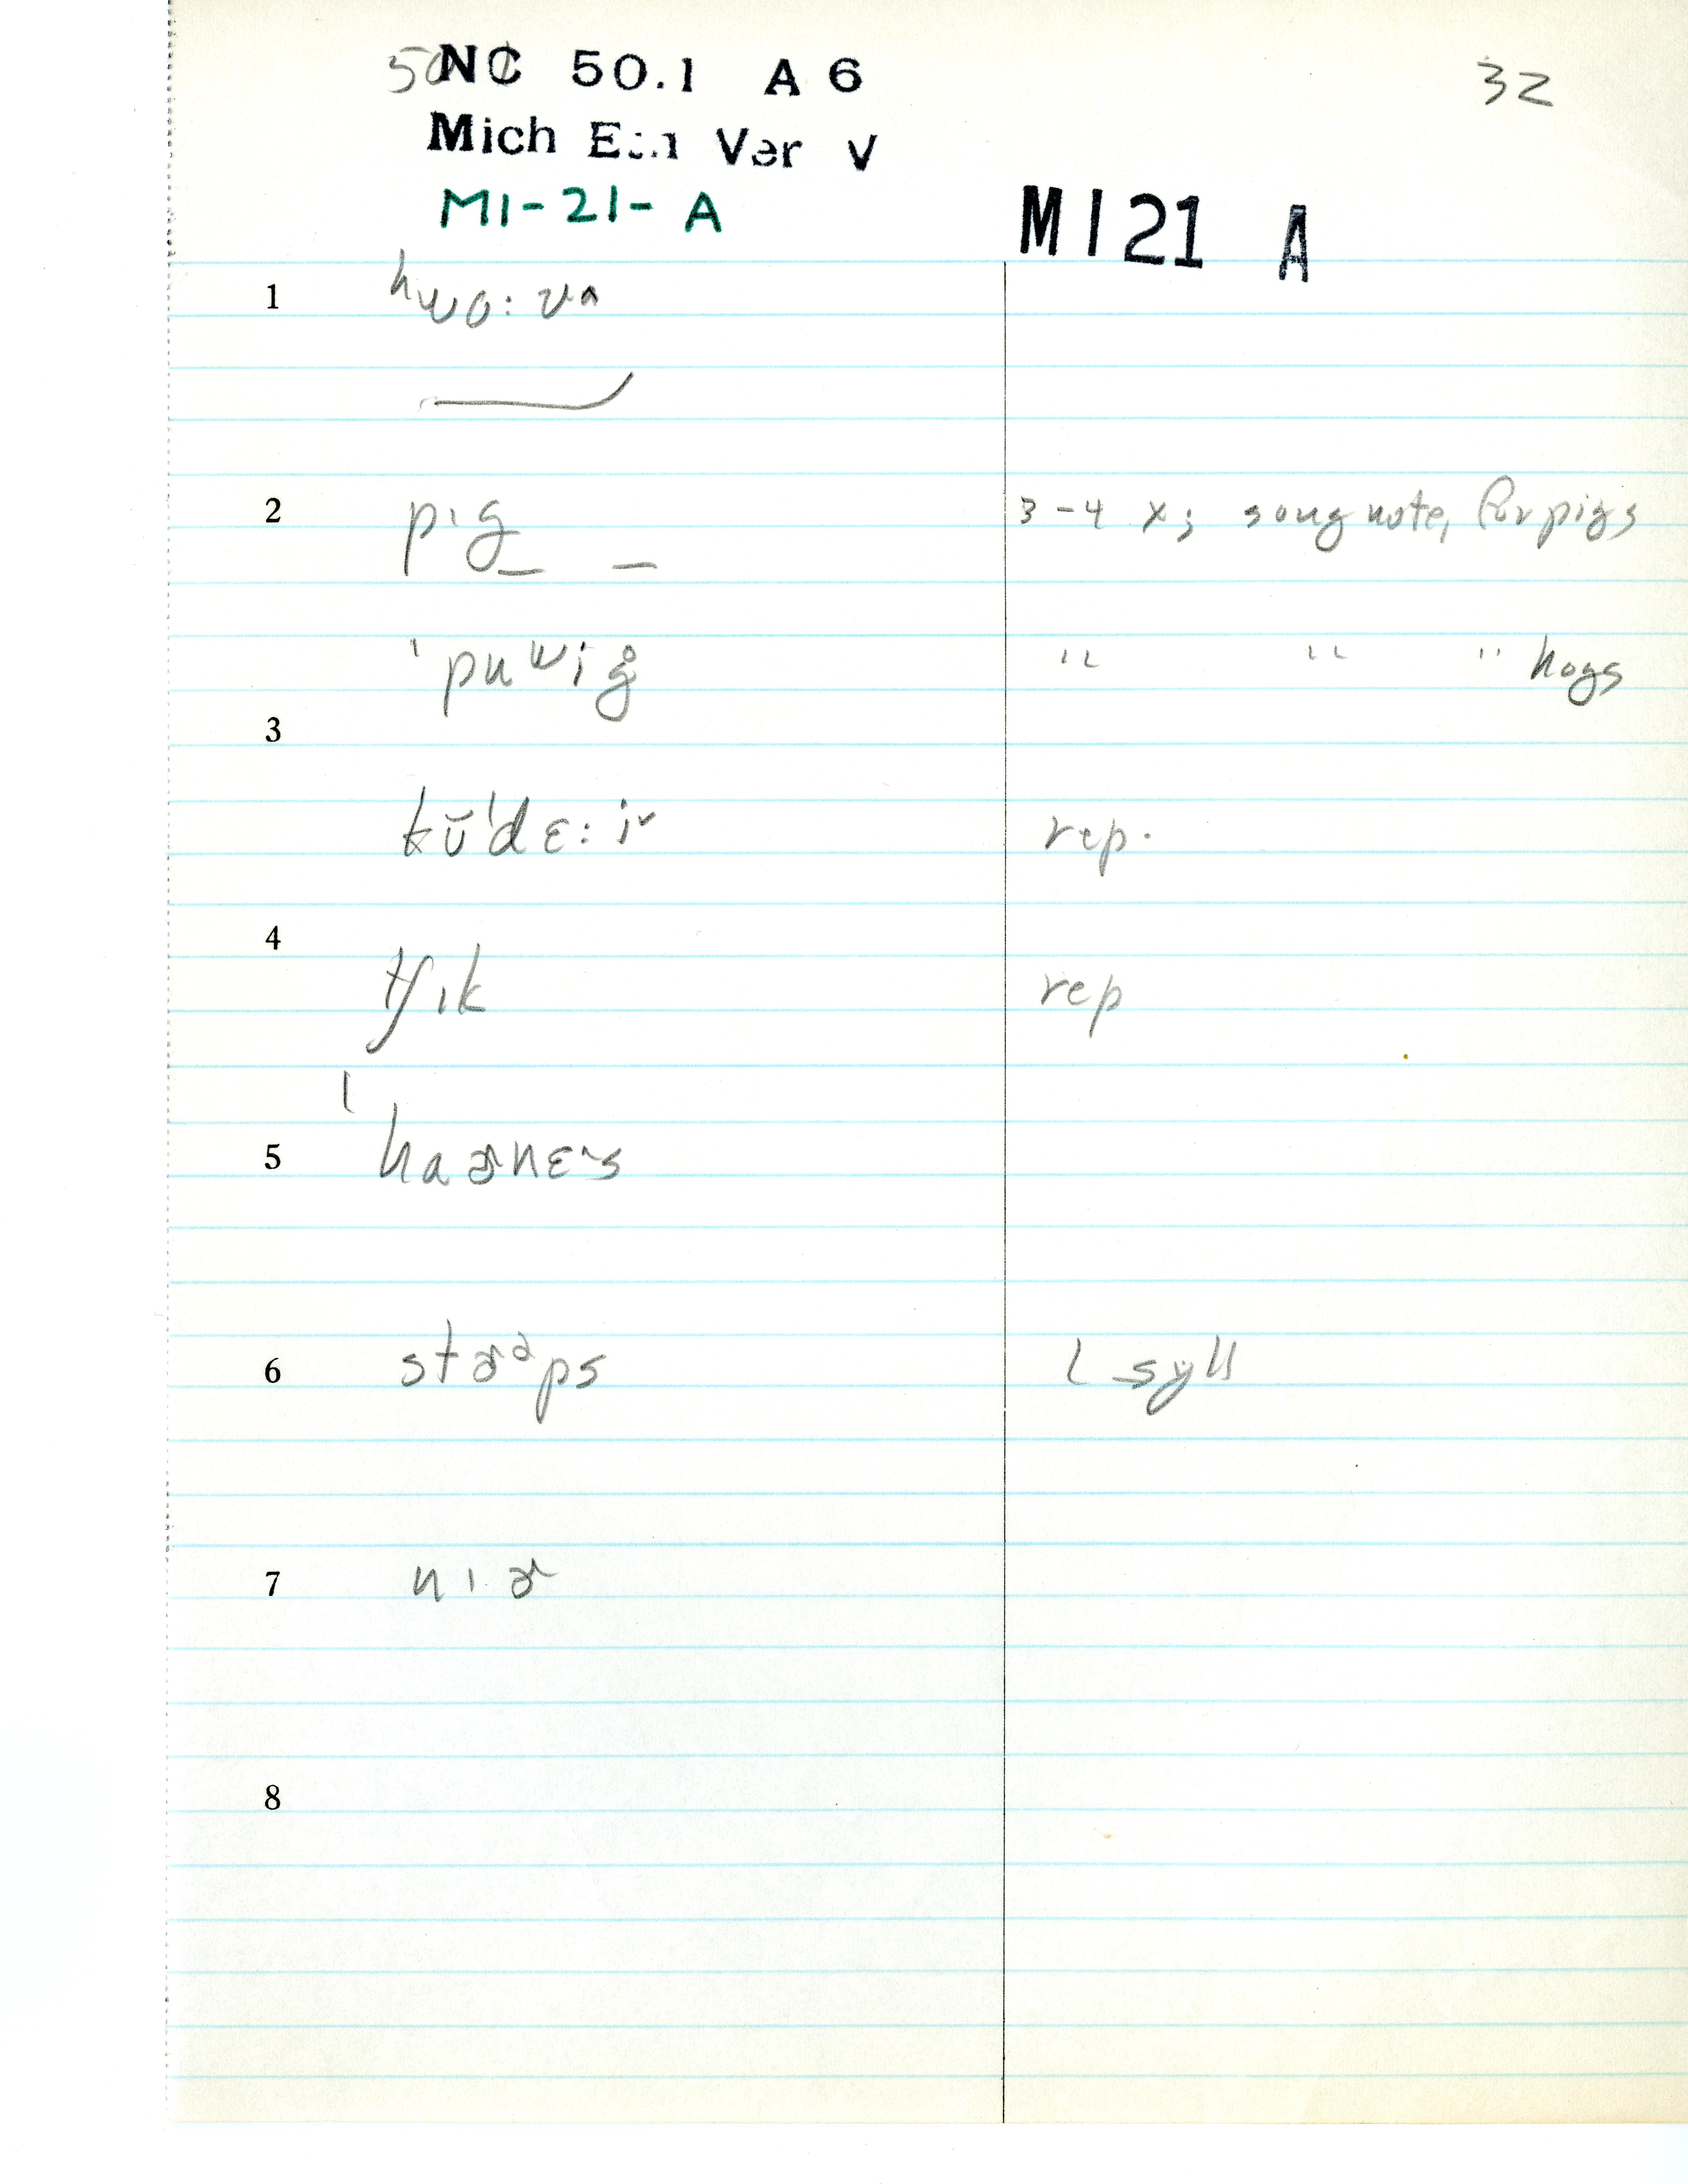 50 NC 50.1 A 6 32
Mich Ver V
MI-21-A MI21 A
1 hwo:vʌ
2 pıg 3-4 x; song note, for pigs
ˈpuʷig̊ " " " hogs
3
kŭˈdɛ:iɚ rep.
4
tʃık rep
5 ˈhaɚnɛ˞s
6 stɚᵊps 1 syll
7 nıɚ
8